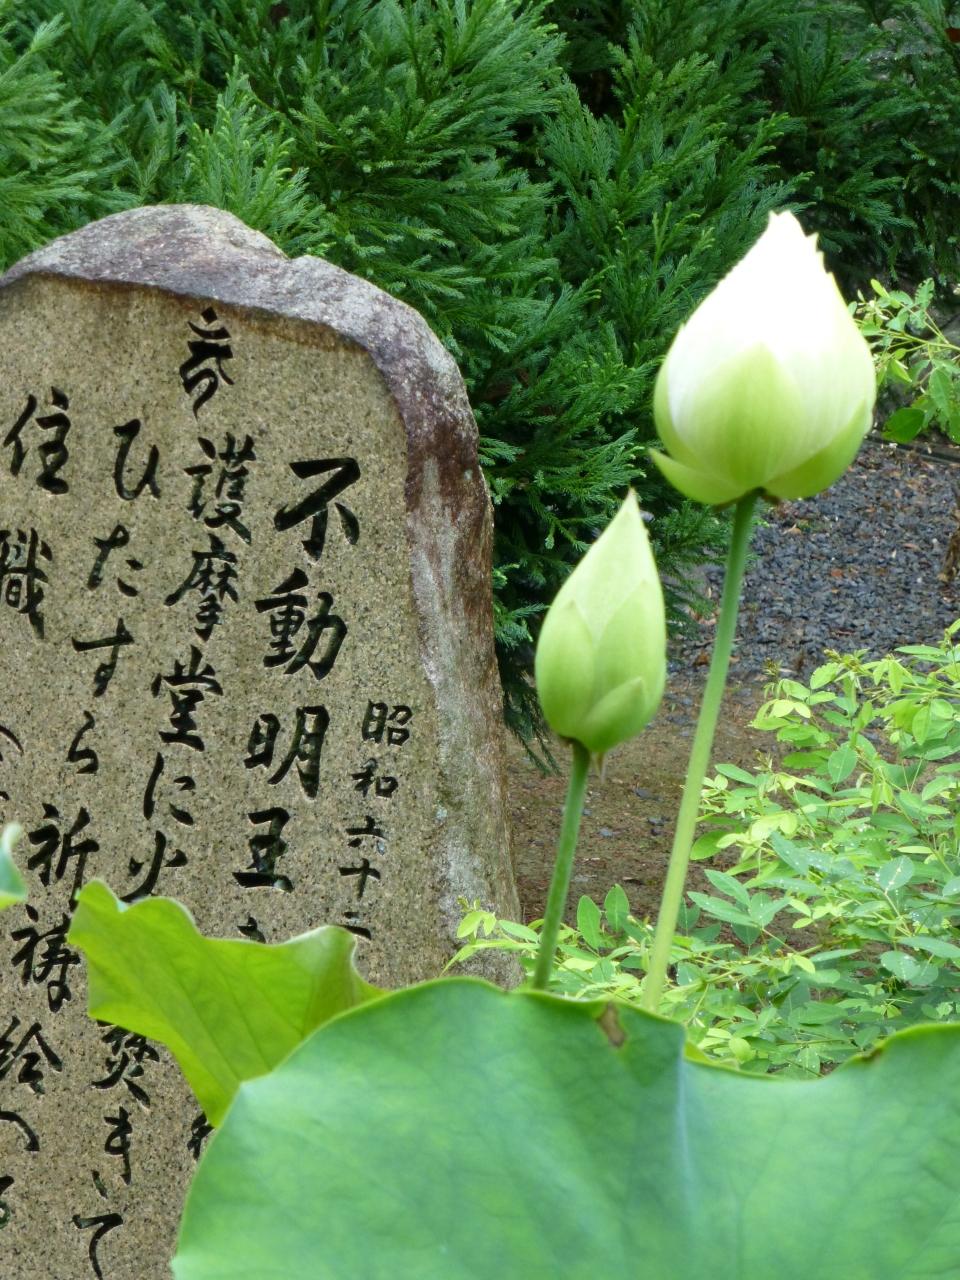 昭和六十二
不動明王
護摩堂に火
焚きて
ひたすら祈祷
給へる
住職